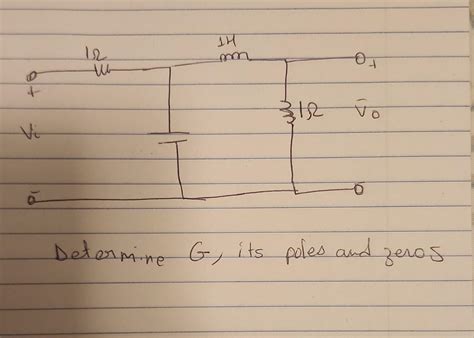 1Ω
1H
+
Vi
-
+
1Ω
Vo
-
Determine G, its poles and zeros